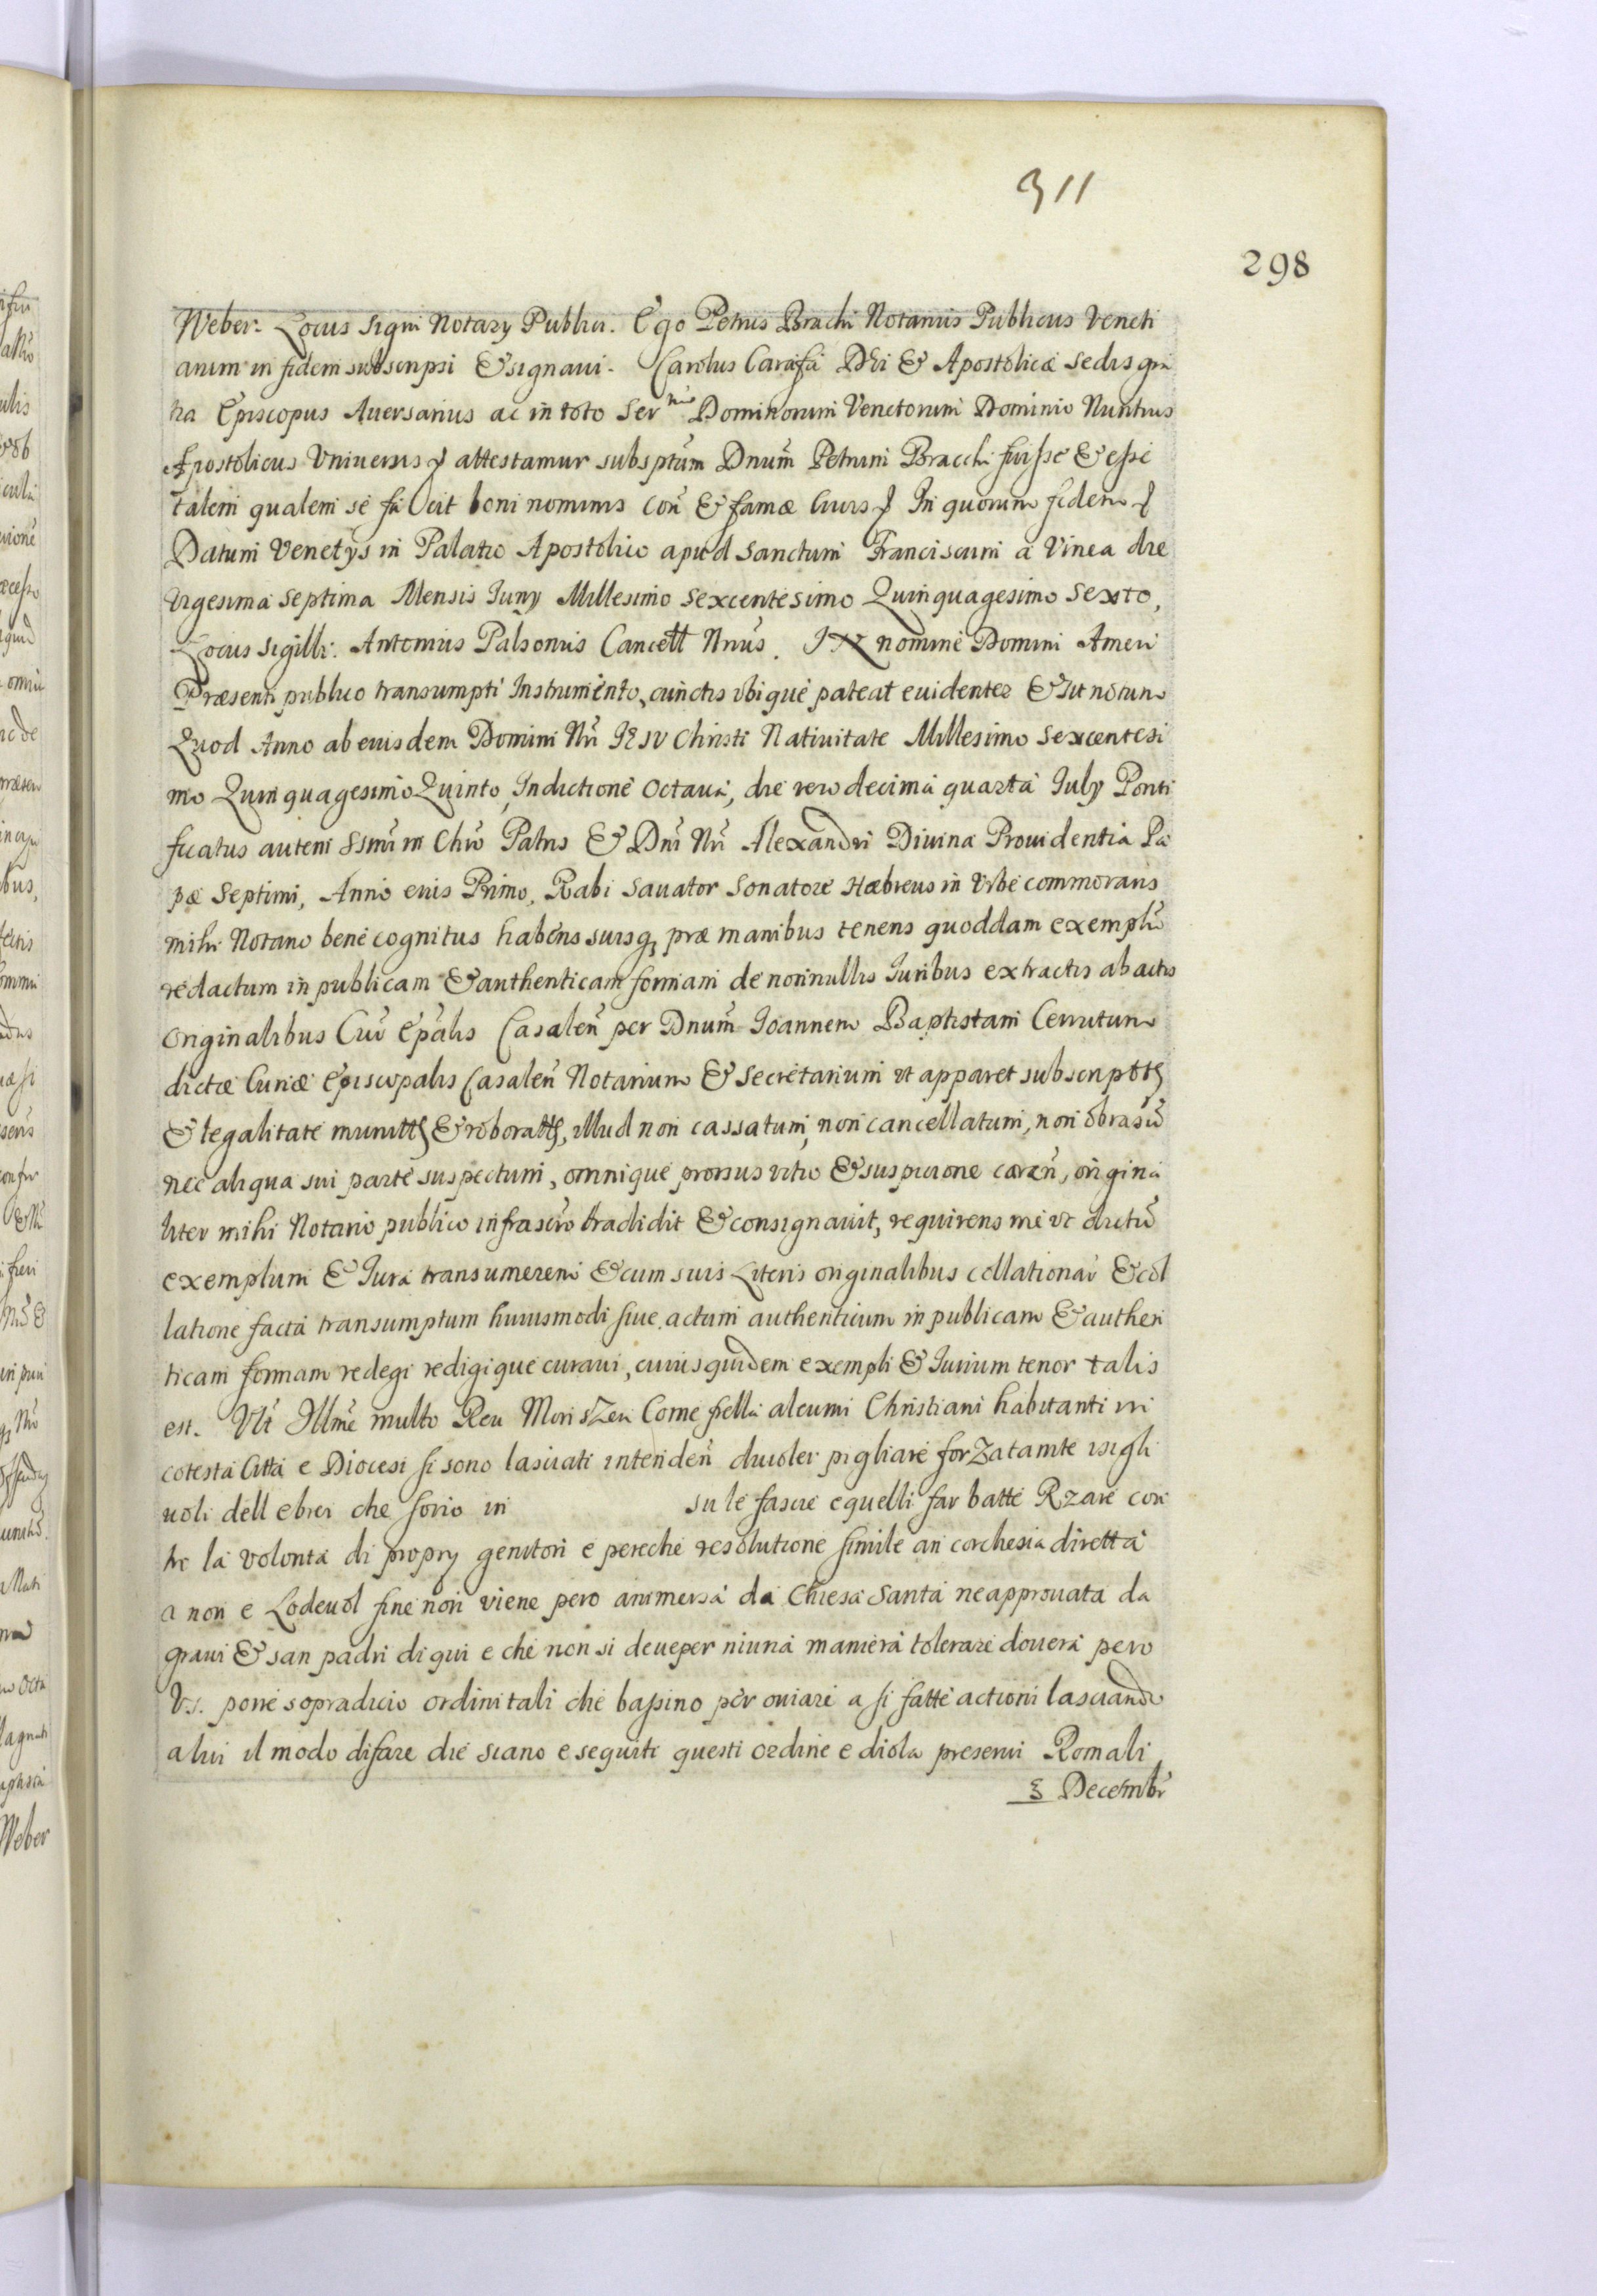 311
298
Weber. Locus signi Notarÿ Publici. Ego Petrus Brachi Notarius Publicus Veneti
arum in fidem subscripsi & signaui. Carolus Carafa Dei & Apostolicæ sedis gra
tia Episcopus Auersanus ac in toto Ser.mo Dominorum Venetorum Dominio Nuntius
Apostolicus Vniuersis attestamur subsptum Dnum Petrum Bracchi fuisse & esse
talem qualem se fa cit boni nominis con & famæ huius In quorum fidem
Datum Venetÿs in Palatio Apostolico apud Sanctum Franciscum a Vinea die
vigesima septima Mensis Iuny Millesimo sexcentesimo Quinquagesimo sexto,
Locus sigilli. Antonius Palsonius Cancell Nrus. IN nomine Domini Amen
Præsenti publico transumpti Instrumento, cunctis vbique pateat euidenter & sit notum
Quod Anno ab eiusdem Domini Nri IESV Christi Natiuitate Millesimo sexcentesi
mo Quinquagesimo Quinto, Indictione octaua, die vero decima quarta Iuly Ponti
ficatus autem SSmi in Chro Patris & Dni Nri Alexandri Diuina Prouidentia Pa
pæ septimi, Anno eius Primo, Rabi Sauator Sonatore Hæbreus in Vrbe commorans
mihi Notario bene cognitus habens suisq, præ manibus tenens quoddam exemplu
redactum in publicam & authenticam formam de nonnullis Iuribus extractis ab actis
originalibus Cur Epalis Casalen per Dnum Ioannem Baptistam Cerrutum
dictæ Curiæ Episcopalis Casalen Notarium & Secretarium vt apparet subscriptt
& legalitate munitt & roboratt, illud non cassatum, non cancellatum, non obrasu
nec aliqua sui parte suspectum, omnique prorsus vitio & suspicione caren, origina
liter mihi Notario publico infrascro tradidit & consignauit, requirens me vt dictu
exemplum & Iura transumerem & cum suis Literis originalibus collationar & col
latione facta transumptum huiusmodi siue actum authenticum in publicam & authen
ticam formam redegi redigique curaui, cuius quidem exempli & Iurium tenor talis
est. Vlt Illme multo Reu Mon sZen Come fella alcumi Christiani habitanti in
cotesta Citta e Diocesi si sono lasciati intenden duioler pigliare forzatamte isigli
uoli dell ebrei che sono in su le fascie equelli far batte Rzare con
tre la volonta di propry genitori e pereche resolutione simile an corchesia diretta
a non e Lodeuol fine non viene pero ammersa da Chiesa Santa ne approuata da
graui & san padri di qui e che non si deueper niuna maniera tolerare douera pero
Vs. porre sopradicio ordini tali che bassino per ouiare a si fatte actioni lasciando
a lui il modo difare die siano e seguiti questi ordine e diola preserui Roma li
3 Decembr